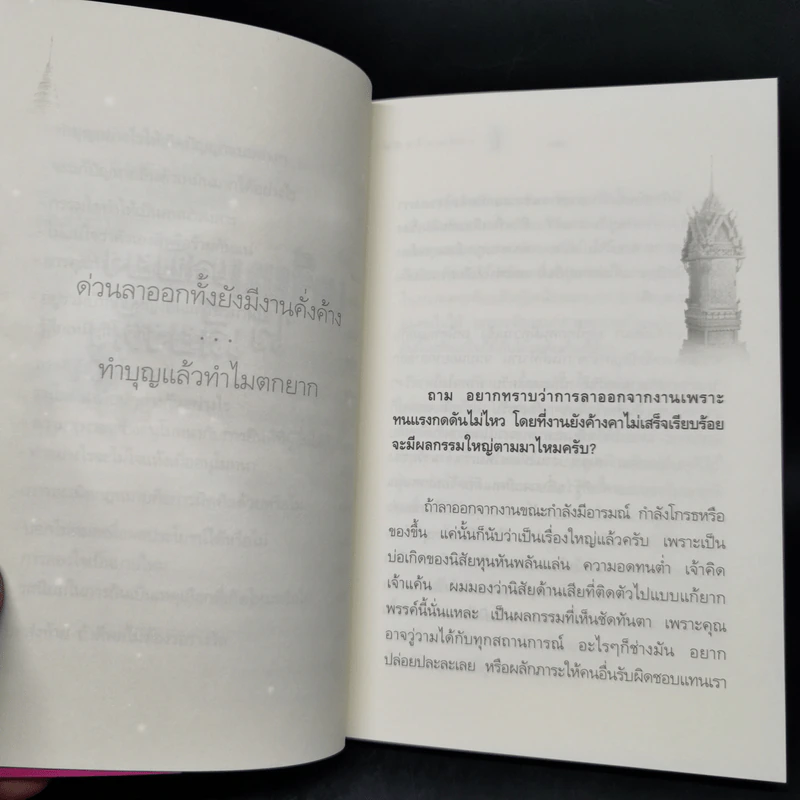 ด่วนลาออกทั้งยังมีงานคั่งค้าง
...
ทำบุญแล้วทำไมตกยาก
ถาม อยากทราบว่าการลาออกจากงานเพราะ
ทนแรงกดดันไม่ไหว โดยที่งานยังค้างคาไม่เสร็จเรียบร้อย
จะมีผลกรรมใหญ่ตามมาไหมครับ?
ถ้าลาออกจากงานขณะกำลังมีอารมณ์ กำลังโกรธหรือ
ของขึ้น แค่นั้นก็นับว่าเป็นเรื่องใหญ่แล้วครับ เพราะเป็น
บ่อเกิดของนิสัยหุนหันพลันแล่น ความอดทนต่ำ เจ้าคิด
เจ้าแค้น ผมมองว่านิสัยด้านเสียที่ติดตัวไปแบบแก้ยาก
พรรค์นี้นั่นแหละ เป็นผลกรรมที่เห็นชัดทันตา เพราะคุณ
อาจวู่วามได้กับทุกสถานการณ์ อะไรๆก็ช่างมัน อยาก
ปล่อยปละละเลย หรือผลักภาระให้คนอื่นรับผิดชอบแทนเรา